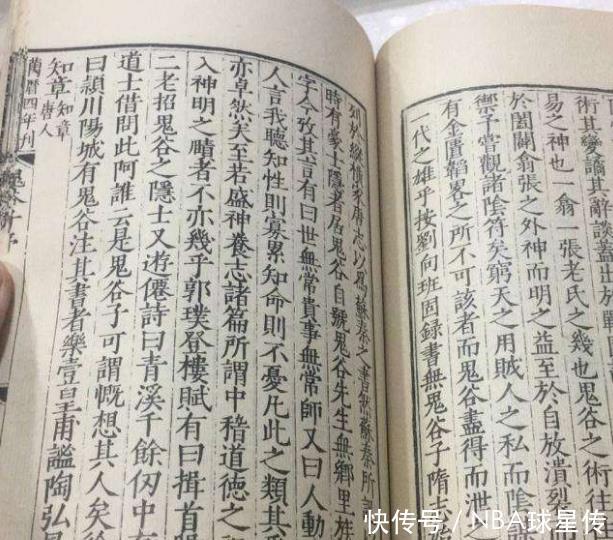 術其變譎其辭談蓋出於戰國
易之神也一翕一張老氏之幾也鬼谷之術往
於闔闢翕張之外神而明之益至於自放潰裂
禦予嘗觀諸陰符矣窮天之用賊人之私而陰
有金匱韜畧之所不可該者而鬼谷盡得而泄
一代之雄乎按劉向班固録書無鬼谷子隋
列於縱橫家唐志以爲蘇秦之書然蘇秦所
時有豪士隱者居鬼谷自號鬼谷先生無鄉里族
字今攷其言有曰世無常貴事無常師又曰人動
人言我聽知性則寡累知命則不憂凡此之類其
亦卓然矣至若盛神養志諸篇所謂中稽道德之
入神明之賾者不亦幾乎郭璞登樓賦有曰揖首
二老招鬼谷之隱士又遊僊詩曰青溪千餘仞中
道士借問此阿誰云是鬼谷子可謂慨想其人矣徐
曰潁川陽城有鬼谷注其書者樂壹皇甫謐陶弘
知章知章唐人
萬曆四年刊
快传号／NBA球星传